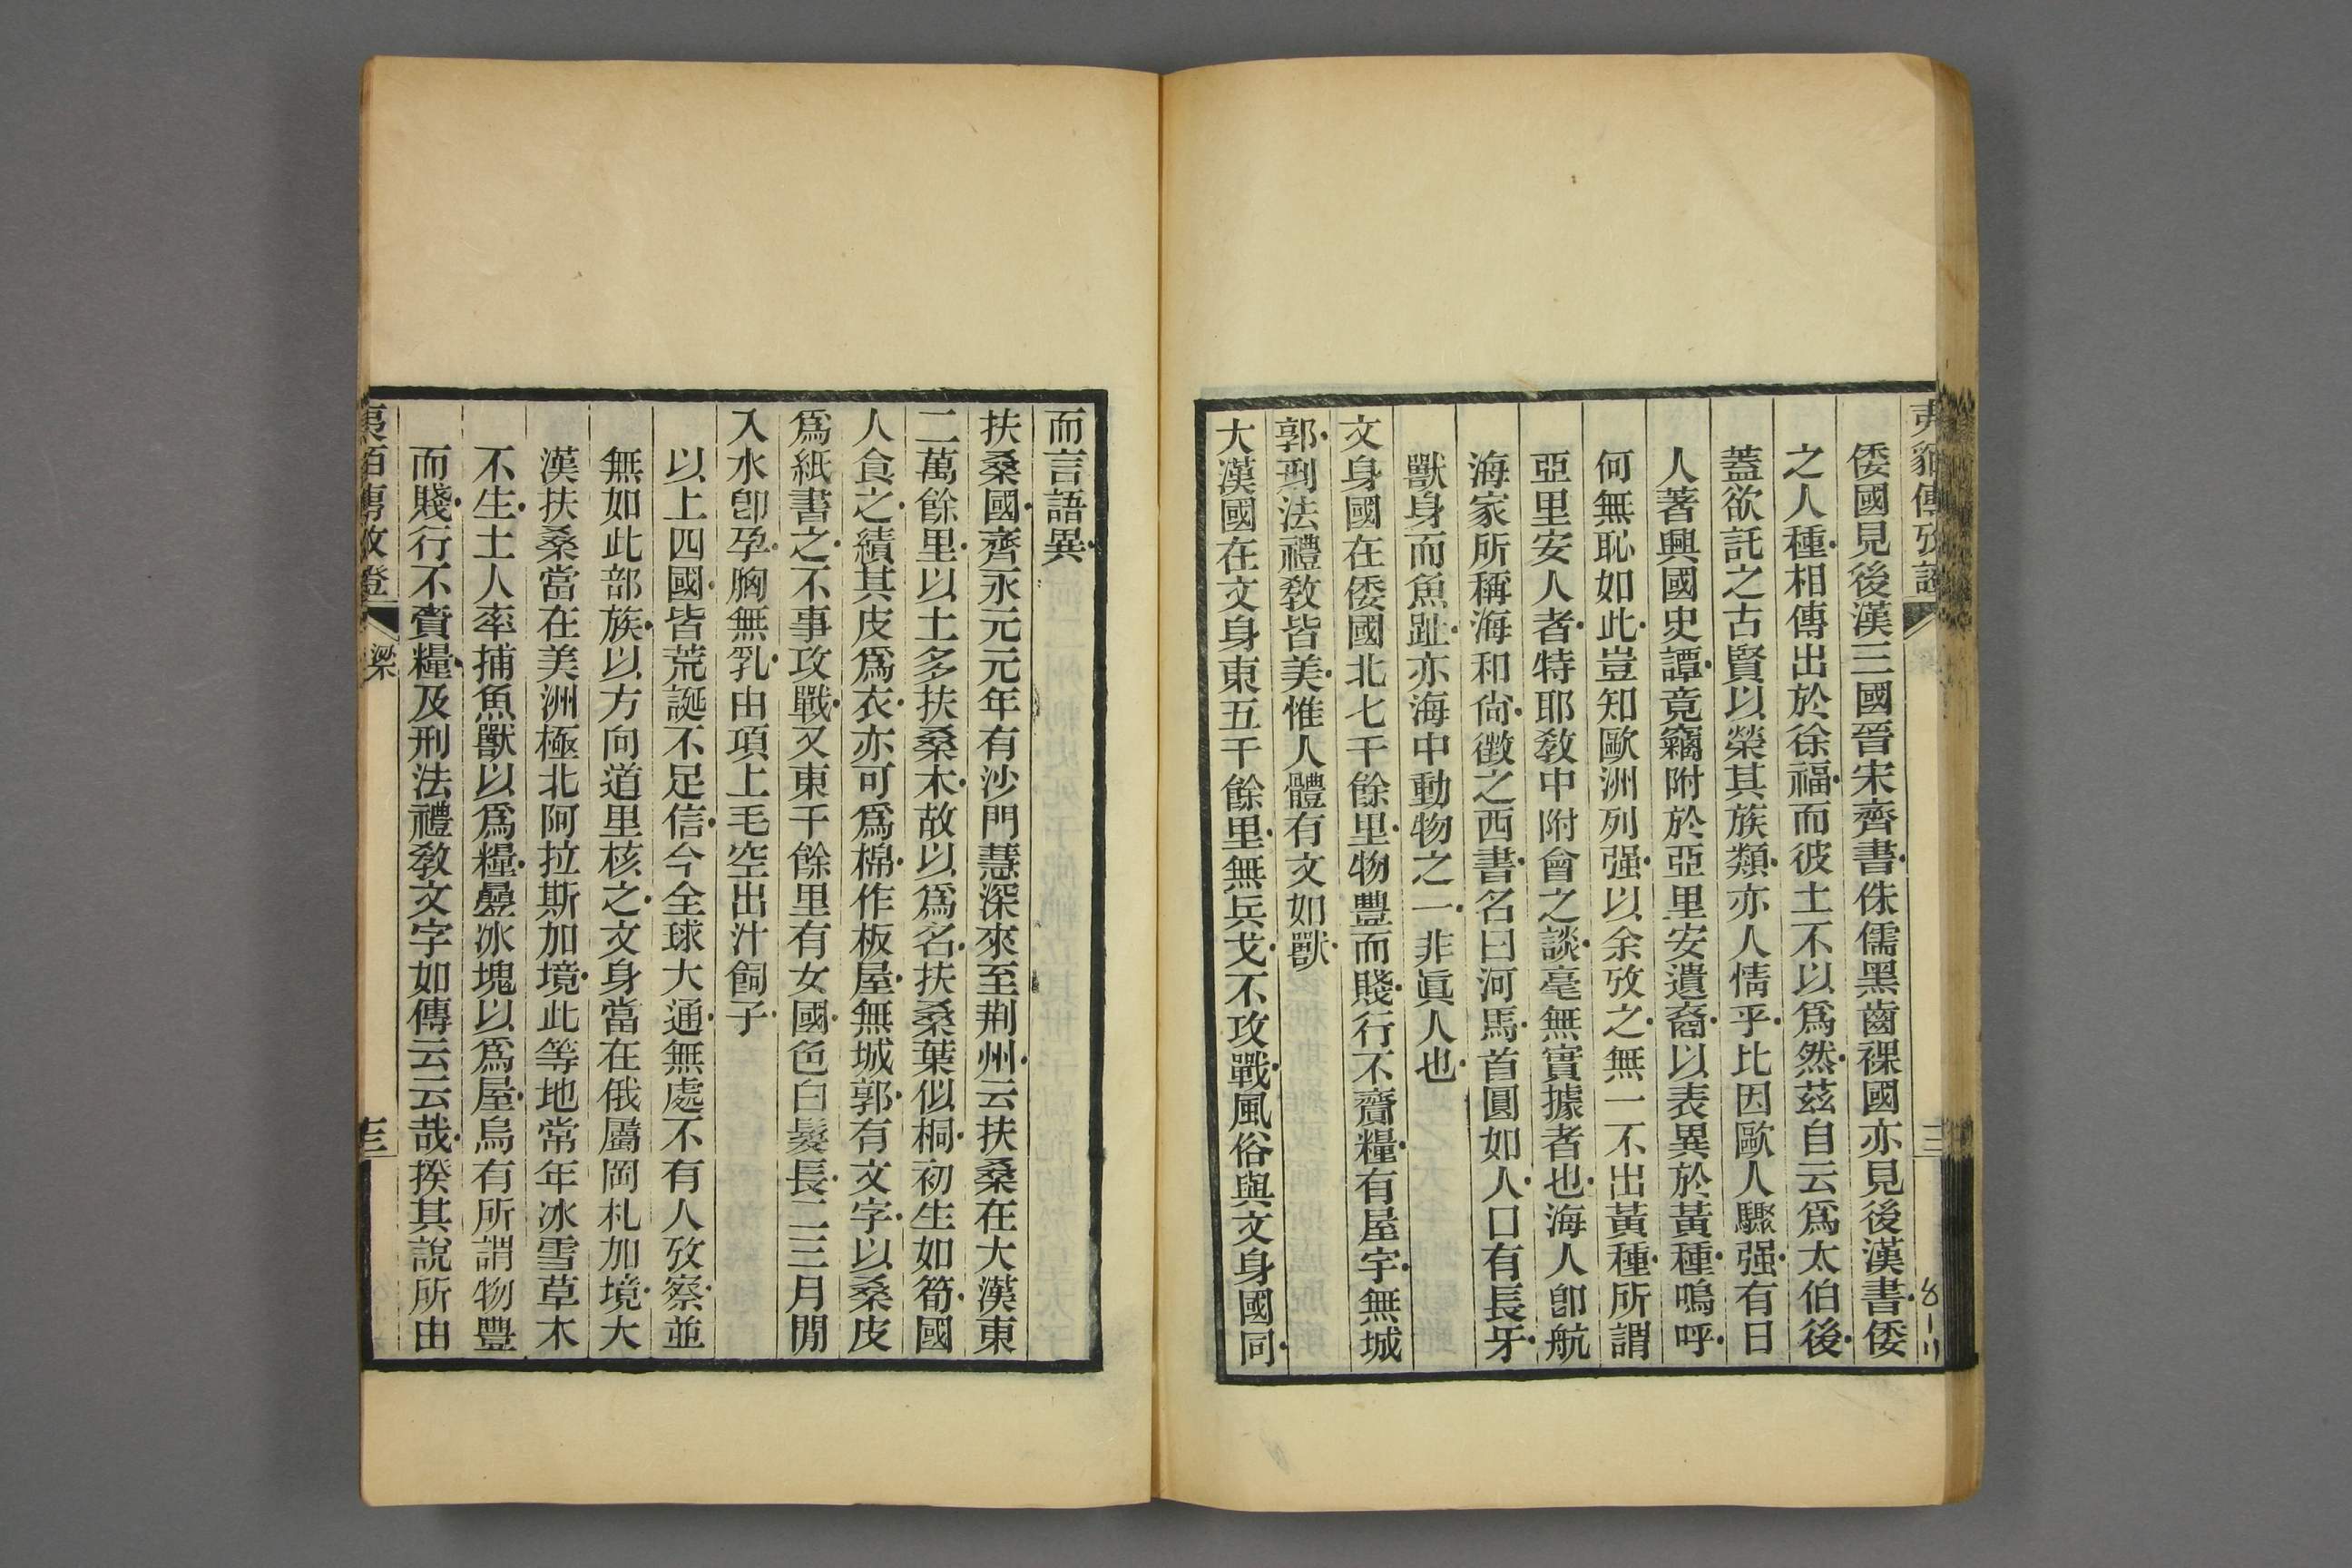 倭國見後漢三國晉宋齊書侏儒黑齒裸國亦見後漢書倭
之人種相傳出於徐福而彼土不以爲然茲自云爲太伯後
蓋欲託之古賢以榮其族類亦人情乎比因歐人驟强有日
人著興國史譚竟竊附於亞里安遺裔以表異於黃種嗚呼
何無恥如此豈知歐洲列强以余攷之無一不出黃種所謂
亞里安人者特耶敎中附會之談毫無實據者也海人卽航
海家所稱海和尙徵之西書名曰河馬首圓如人口有長牙
獸身而魚趾亦海中動物之一非眞人也
文身國在倭國北七千餘里物豐而賤行不齎糧有屋宇無城
郭刑法禮敎皆美惟人體有文如獸
大漢國在文身東五千餘里無兵戈不攻戰風俗與文身國同
而言語異
扶桑國齊永元元年有沙門慧深來至荆州云扶桑在大漢東
二萬餘里以土多扶桑木故以爲名扶桑葉似桐初生如筍國
人食之績其皮爲衣亦可爲棉作板屋無城郭有文字以桑皮
爲紙書之不事攻戰又東千餘里有女國色白髮長二三月閒
入水卽孕胸無乳由項上毛空出汁飼子
以上四國皆荒誕不足信今全球大通無處不有人攷察並
無如此部族以方向道里核之文身當在俄屬岡札加境大
漢扶桑當在美洲極北阿拉斯加境此等地常年冰雪草木
不生土人率捕魚獸以爲糧疊冰塊以爲屋烏有所謂物豐
而賤行不齎糧及刑法禮敎文字如傳云云哉揆其說所由
梁